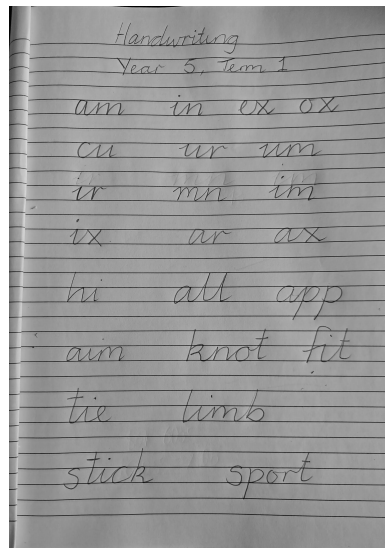 Handwriting
Year 5, Term 1
am in ex ox
cu ur um
ir mn im
ix ar ax
hi all app
aim knot fit
tie limb
stick sport